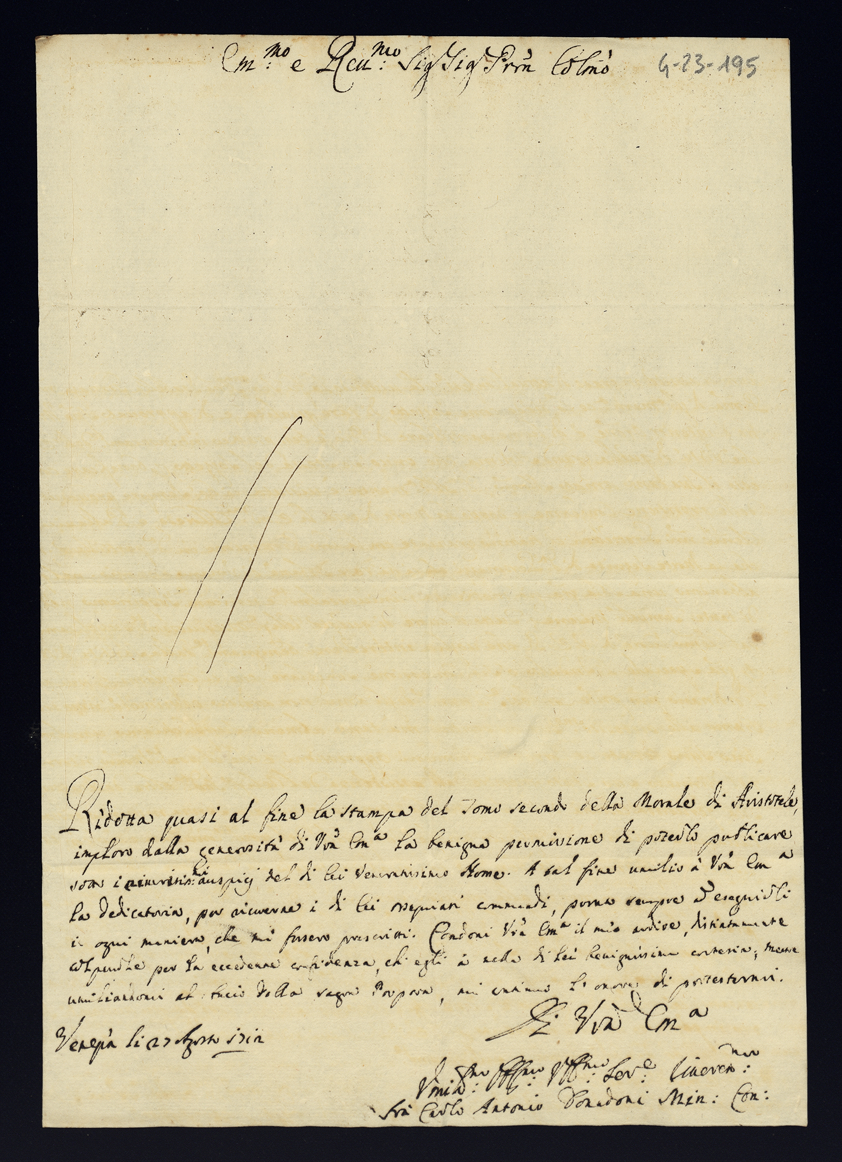 Em.mo e Reu.mo Sig Sig Prñ Colmo G-23-195
Ridotta quasi al fine la stampa del Tomo secondo della Morale di Aristotele,
imploro dalla generosità di Vrã Em.a la benigna permissione di poterlo publicare
sotto i auspicj del di lei Veneratissimo Nome. A tal fine umilio à Vrã Em.a
la dedicatoria, per riceverne i di lei ossequiati commandi, pronto sempre ad eseguirli
in ogni maniera, che mi fossero prescritti. Condoni Vrã Em.a il mio ardire, distintamente
colpevole per la eccedente confidenza, ch'egli à nella di lei benignissima cortesia; mentre
umiliandomi al bacio della sagra Porpora, mi continuo l'onore di protestarmi.
Di Vrã Em.a
Venezia li 27 Agosto
Vmil.mo Serv.e
Frà Carlo Antonio Donadoni Min: Con: